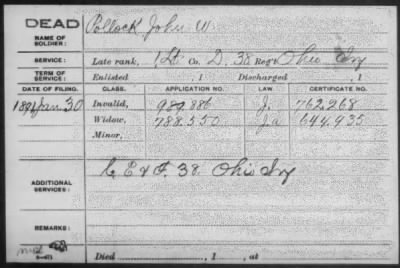 DEAD Pollock John W.
NAME OF SOLDIER:
SERVICE: Late rank, 1 Lt Co. D, 38 Reg't Ohio Inf
TERM OF SERVICE: Enlisted , 1 Discharged , 1
DATE OF FILING. CLASS. APPLICATION NO. LAW CERTIFICATE NO.
Jan 30 Invalid, 886 J. 762.268
Widow, 788.550 644.935
Minor,
ADDITIONAL SERVICES: C, E & F. 38 Ohio Inf
REMARKS:
Died , 1 , at